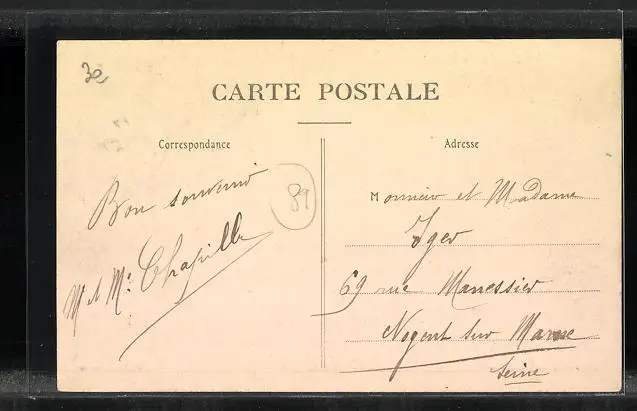 30
CARTE POSTALE
Correspondance
Adresse
Bon souvenir
89
M et Me Chapelle
Monsieur et Madame
Iger
69 rue Manessier
Nogent sur Marne
Seine